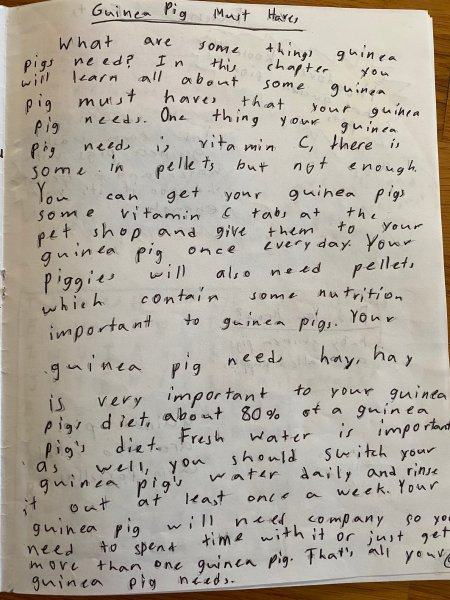 Guinea Pig Must Haves
What are some things guinea
pigs need? In this chapter you
will learn all about some guinea
pig must haves that your guinea
pig needs. One thing your guinea
pig needs is vitamin C, there is
some in pellets but not enough.
You can get your guinea pigs
some vitamin C tabs at the
pet shop and give them to your
guinea pig once everyday. Your
piggies will also need pellets
which contain some nutrition
important to guinea pigs. Your
guinea pig needs hay, hay
is very important to your guinea
pigs diet, about 80% of a guinea
pig's diet. Fresh water is important
as well, you should switch your
guinea pig's water daily and rinse
it out at least once a week. Your
guinea pig will need company so you
need to spend time with it or just get
more than one guinea pig. That's all your
guinea pig needs.